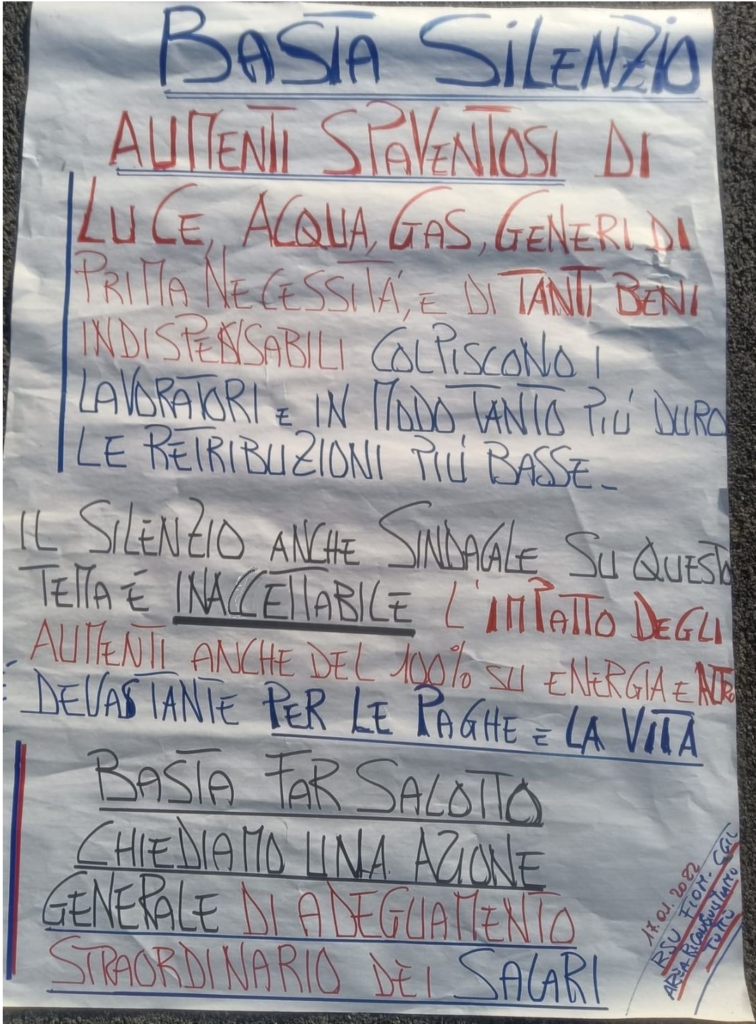 BASTA SILENZIO
AUMENTI SPAVENTOSI DI
LUCE, ACQUA, GAS, GENERI DI
PRIMA NECESSITÁ, E DI TANTI BENI
INDISPENSABILI COLPISCONO I
LAVORATORI E IN MODO TANTO PIÚ DURO
LE RETRIBUZIONI PIÚ BASSE_
IL SILENZIO ANCHE SINDACALE SU QUESTO
TEMA É INACCETTABILE L'IMPATTO DEGLI
AUMENTI ANCHE DEL 100% SU ENERGIA E ALTRO
É DEVASTANTE PER LE PAGHE E LA VITA
BASTA FAR SALOTTO
CHIEDIAMO UNA AZIONE
GENERALE DI ADEGUAMENTO
STRAORDINARIO DEI SALARI
17.01.2022
RSU FIOM-CGIL
AREA RICONQUISTIAMO
TUTTO